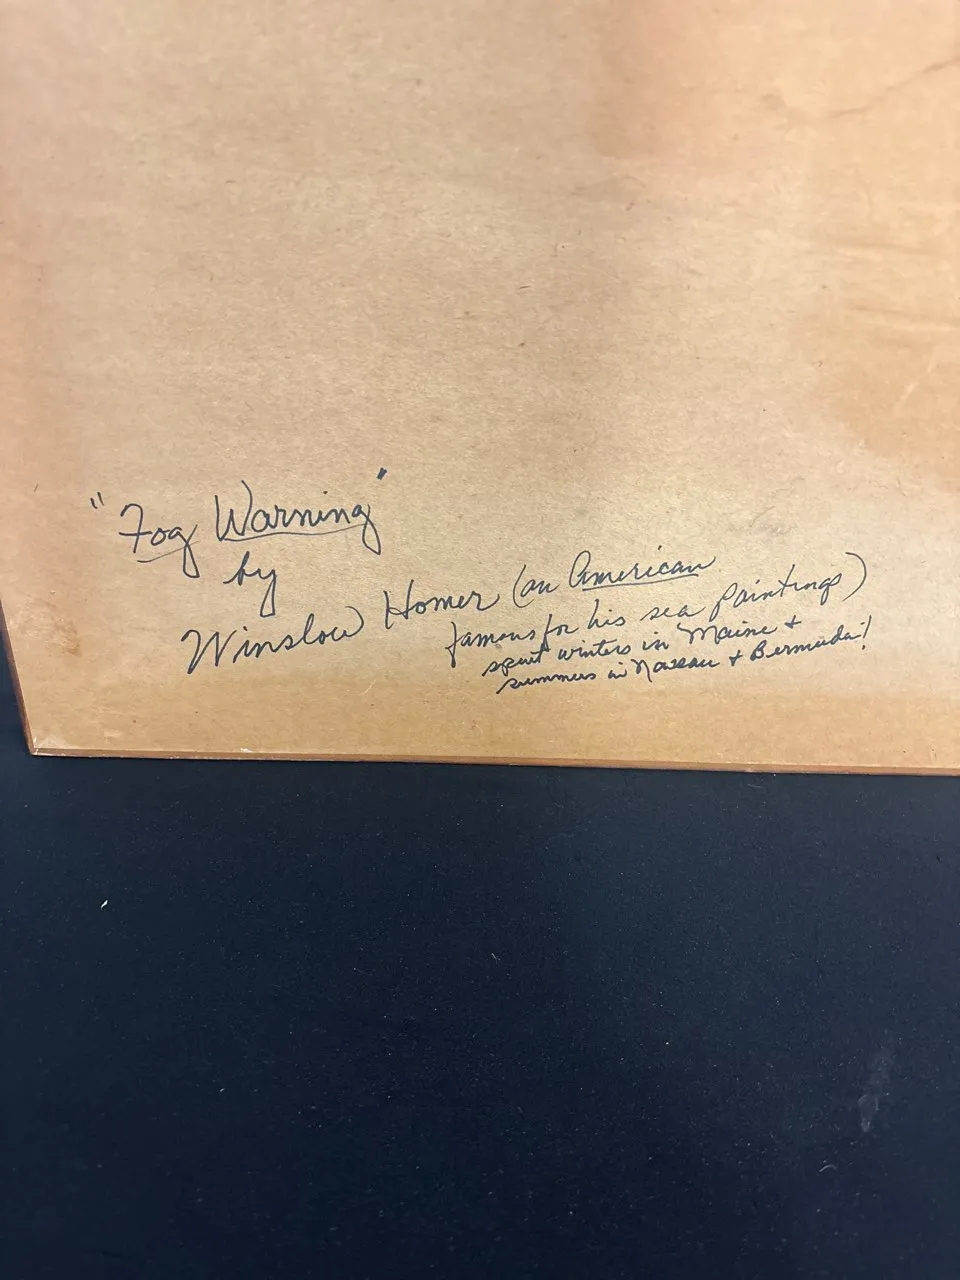 "Fog Warning"
by
Winslow Homer (an American
famous for his sea paintings)
spent winters in Maine +
summers in Nassau + Bermuda!